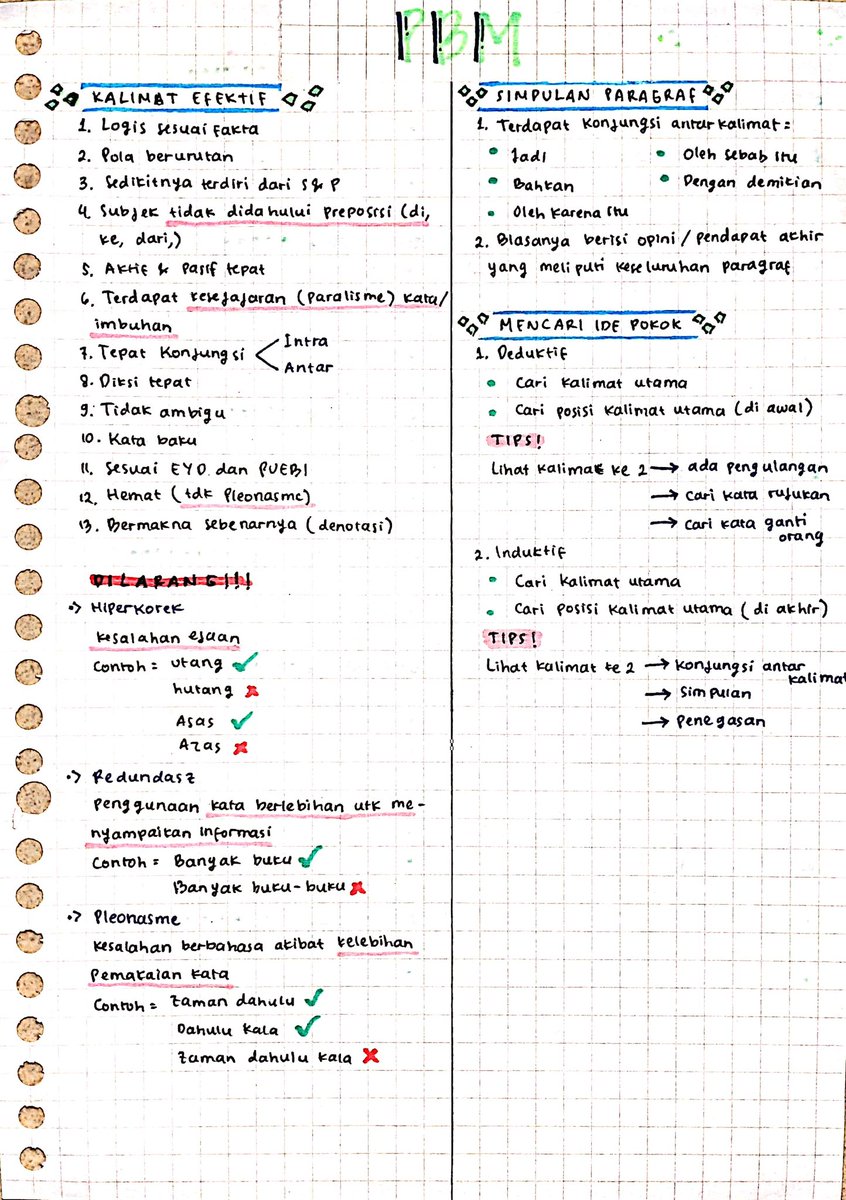 PBM
KALIMAT EFEKTIF
1. Logis sesuai fakta
2. Pola berurutan
3. Sedikitnya terdiri dari S & P
4. Subjek tidak didahului preposisi (di,
ke, dari,)
5. Aktif & Pasif tepat
6. Terdapat kesejajaran (paralisme) kata/
imbuhan
7. Tepat Konjungsi
Intra
Antar
8. Diksi tepat
9. Tidak ambigu
10. Kata baku
11. Sesuai EYD dan PUEBI
12. Hemat (tdk Pleonasme)
13. Bermakna sebenarnya (denotasi)
DILARANG!!!
•> Hiperkorek
Kesalahan ejaan
Contoh = utang ✓
hutang ✗
Asas ✓
Azas ✗
•> Redundasz
Penggunaan kata berlebihan utk me-
nyampaikan informasi
Contoh = Banyak buku ✓
Banyak buku-buku ✗
•> Pleonasme
Kesalahan berbahasa akibat kelebihan
Pemakaian kata
Contoh = Zaman dahulu ✓
Dahulu kala ✓
Zaman dahulu kala ✗
SIMPULAN PARAGRAF
1. Terdapat Konjungsi antarkalimat =
• Jadi • Oleh sebab itu
• Bahkan • Dengan demikian
• Oleh karena itu
2. Biasanya berisi opini / pendapat akhir
yang meliputi keseluruhan paragraf
MENCARI IDE POKOK
1. Deduktif
• Cari kalimat utama
• Cari posisi kalimat utama (di awal)
TIPS!
Lihat kalimat ke 2 → ada pengulangan
→ cari kata rujukan
→ cari kata ganti
orang
2. Induktif
• Cari kalimat utama
• Cari posisi kalimat utama (di akhir)
TIPS!
Lihat kalimat ke 2 → konjungsi antar
kalimat
→ simpulan
→ penegasan